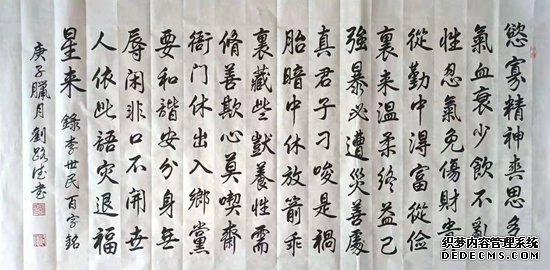 慾寡精神爽思多
氣血衰少飲不亂
性忍氣免傷財貴
從勤中得富從儉
裏来溫柔終益己
強暴必遭災善處
真君子刁唆是禍
胎暗中休放箭乖
裏藏些獃養性需
脩善欺心莫喫齋
衙门休出入鄉黨
要和諧安分身無
辱闲非口不開世
人依此語灾退福
星来 錄李世民百字銘
庚子臘月劉路书
织梦内容管理系统
DEDECMS.COM